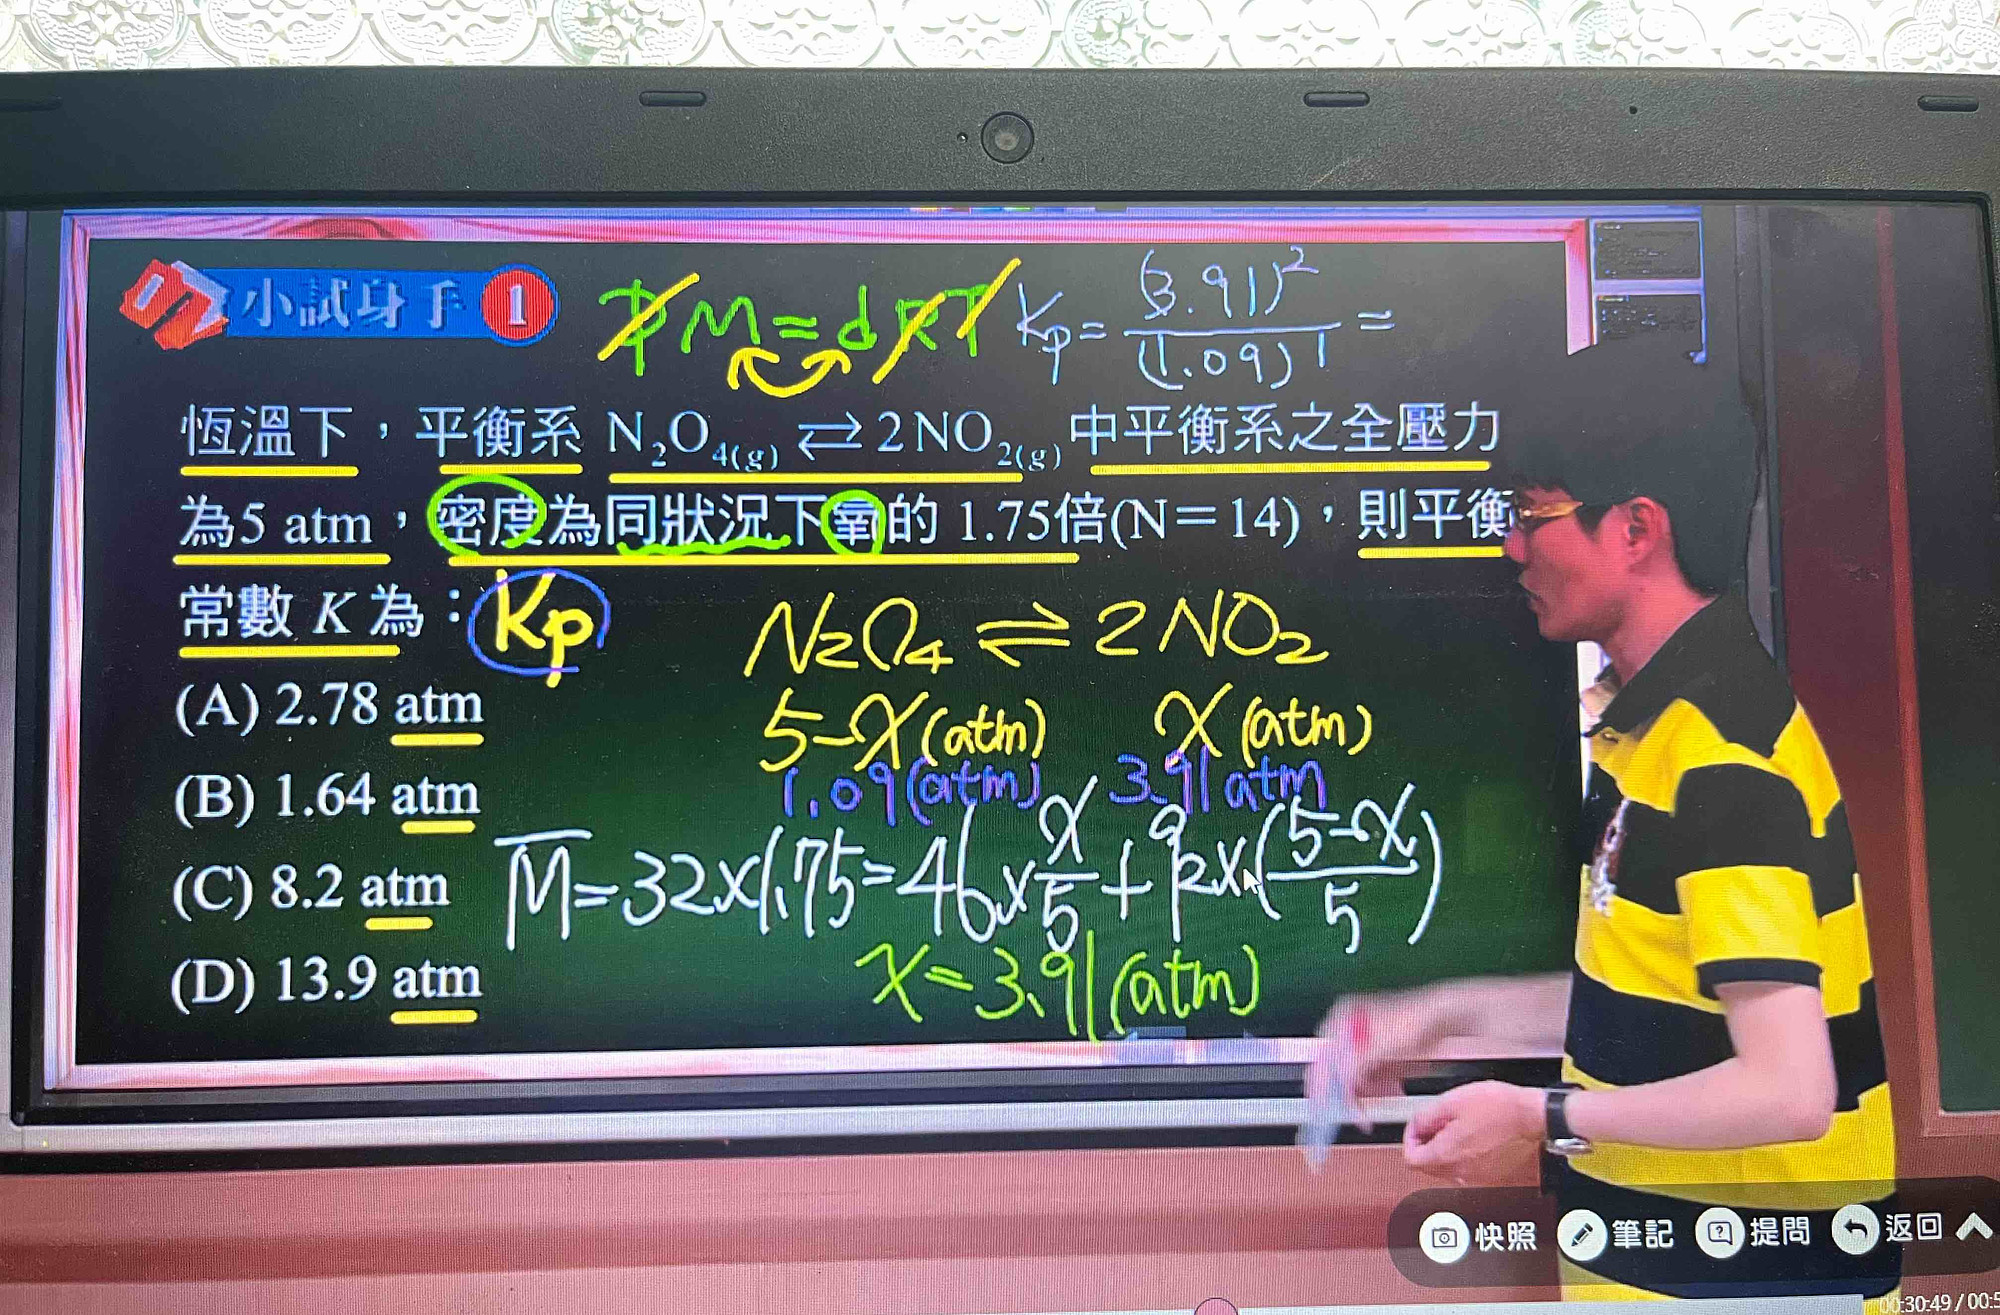 小試身手 1
PM=dRT Kp=(3.91)²/(1.09)¹=
恆溫下，平衡系 N₂O₄(g) ⇄ 2NO₂(g) 中平衡系之全壓力
為5 atm，密度為同狀況下氧的 1.75倍(N＝14)，則平衡
常數 K 為： Kp
N₂O₄ ⇌ 2NO₂
(A) 2.78 atm
5-x(atm) x(atm)
(B) 1.64 atm
1.09(atm) 3.91atm
M̅=32×1.75=46×x/5+92×(5-x/5)
(C) 8.2 atm
(D) 13.9 atm
x=3.91(atm)
快照 筆記 提問 返回
00:30:49/00:5